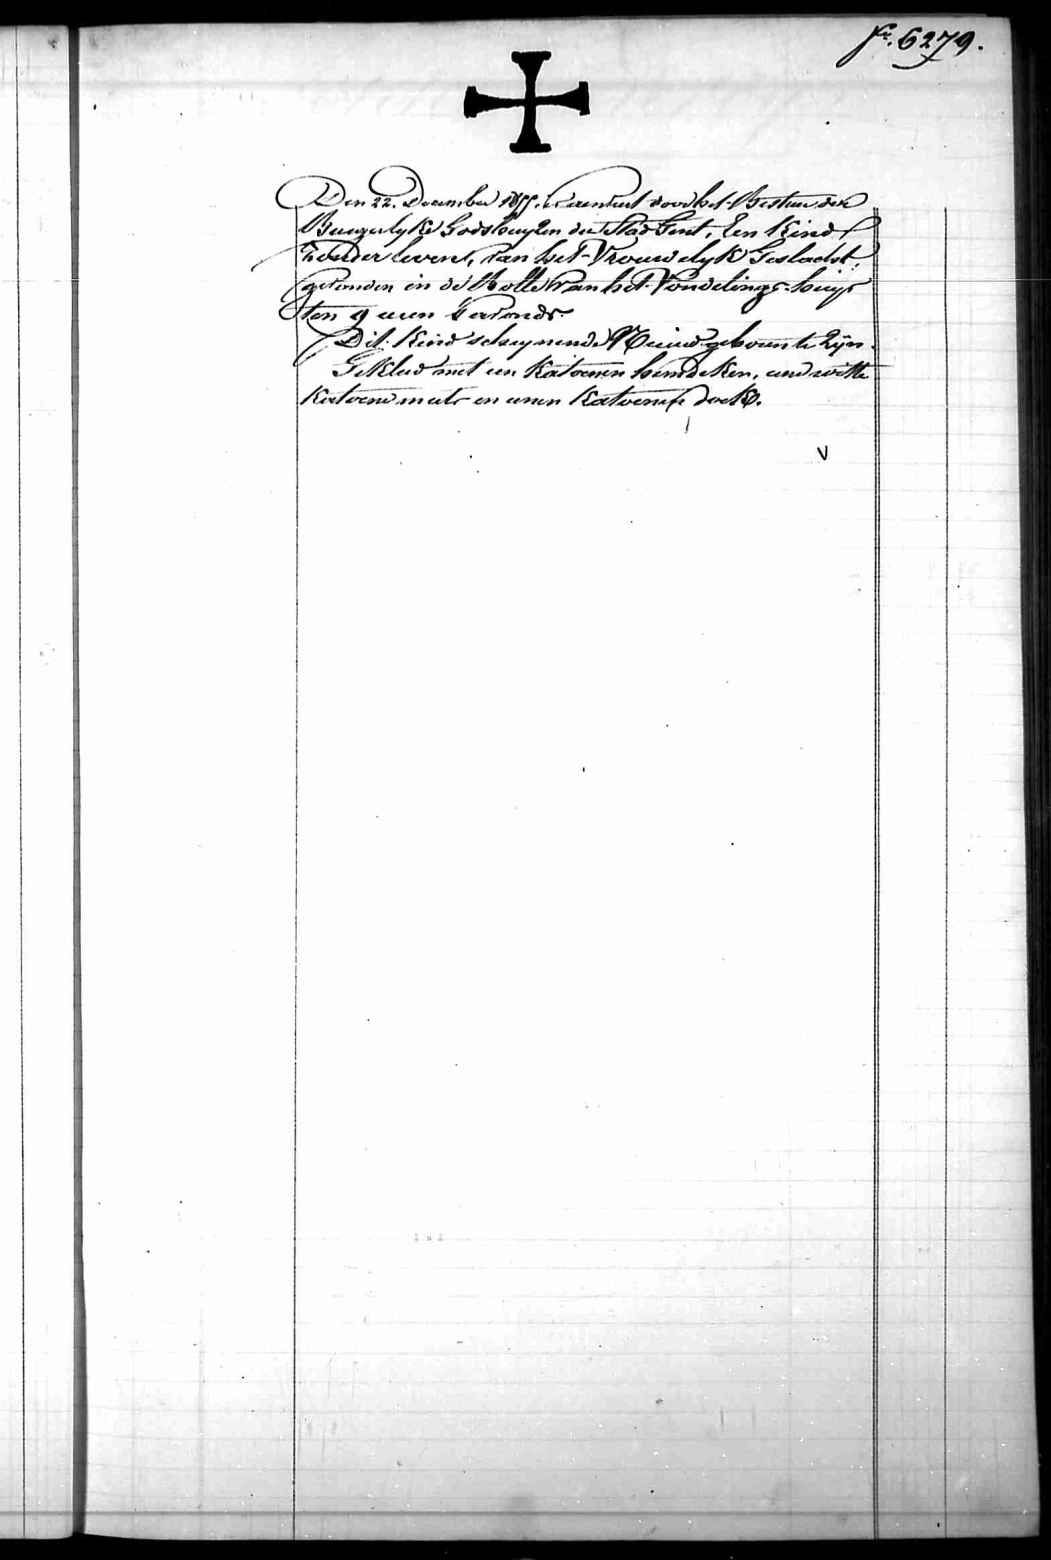 6279.
Den 22. December 1855. door het Bestuur der
Burgerlyke Godshuyzen der Stad Gent, Een Kind
zonder leven, van het Vrouwelyk Geslacht,
gevonden in de Rolle van het Vondelings-huys
ten 9 uren s'avonds.
Dit Kind schynende Nieuw geboren te Zyn.
Gekleed met een Katoenen hemdeken, eene witte
Katoene muts en eenen Katoenen doek.